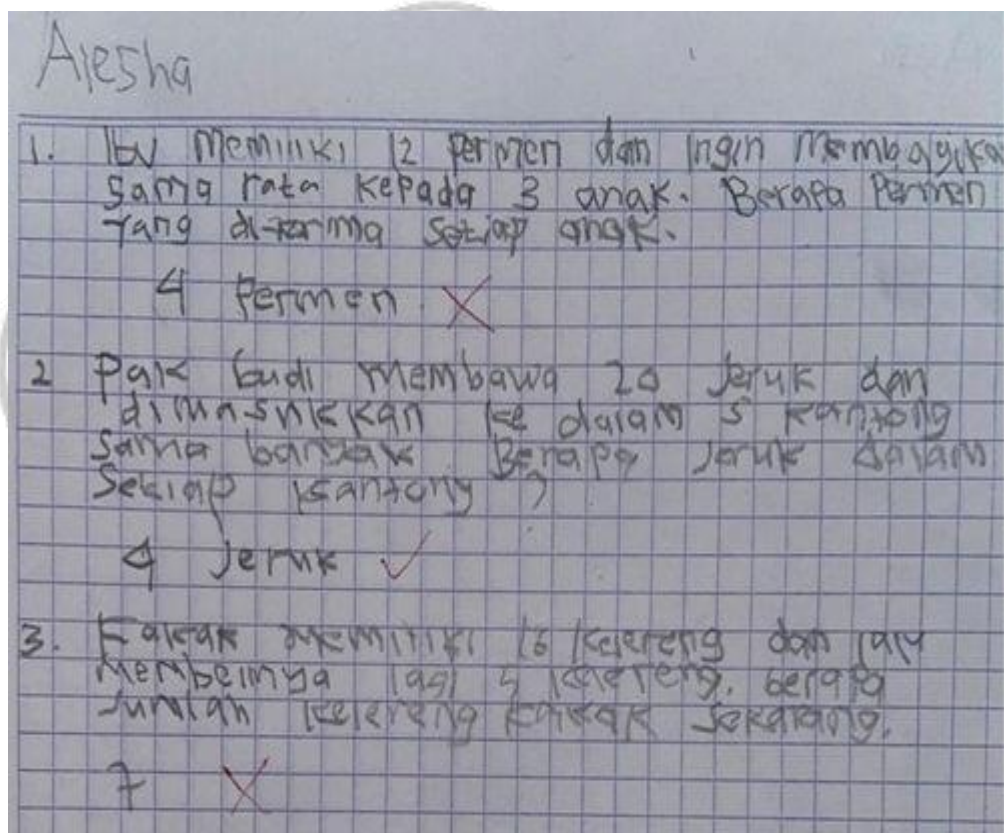 Alesha
1. Ibu Memiliki 12 permen dan ingin Membagika
sama rata kepada 3 anak. Berapa Permen
yang di terima setiap anak.
4 Permen
2 Pak budi membawa 20 Jeruk dan
dimasukkan ke dalam 5 kantong
sama banyak Berapa Jeruk dalam
Setiap kantong ?
4 Jeruk
3. Kakak memiliki 16 kelereng dan lalu
membelinya lagi 5 kelereng. berapa
Jumlah kelereng kakak sekarang.
7